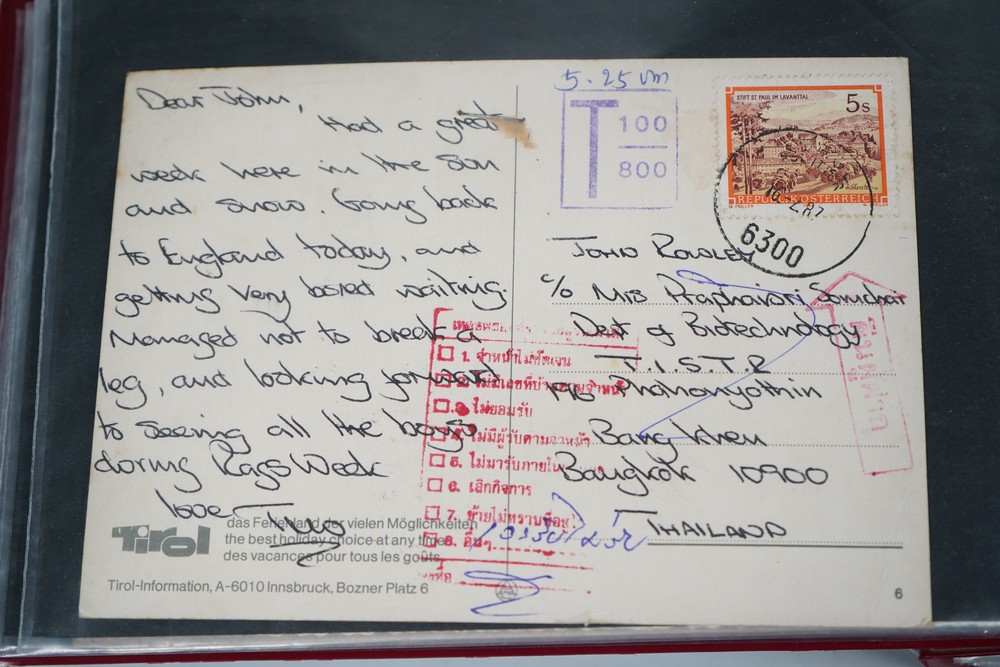 Dear John,
Had a great
week here in the Sun
and Snow. Going back
to England today, and
getting very bored waiting.
Managed not to break a
leg, and looking forward
to seeing all the boys
during Rags Week
love
Tirol
das Ferienland der vielen Möglichkeiten
the best holiday choice at any time
des vacances pour tous les goûts
Tirol-Information, A-6010 Innsbruck, Bozner Platz 6
5.25
T 100
800
STIFT ST. PAUL IM LAVANTTAL
5s
REPUBLIK ÖSTERREICH
2.87
6300
John Rowley
c/o Mrs Praphaisri Somchai
Dept of Biotechnology
T.I.S.T.R
196 Phahanyothin
Bang Khen
Bangkok 10900
THAILAND
1. จ่าหน้าไม่ชัดเจน
2. ไม่มีเลขที่บ้านตามจ่าหน้า
3. ไม่ยอมรับ
4. ไม่มีผู้รับตามจ่าหน้า
5. ไม่มารับภายใน
6. เลิกกิจการ
7. ย้ายไม่ทราบที่อยู่
8. อื่นๆ
6